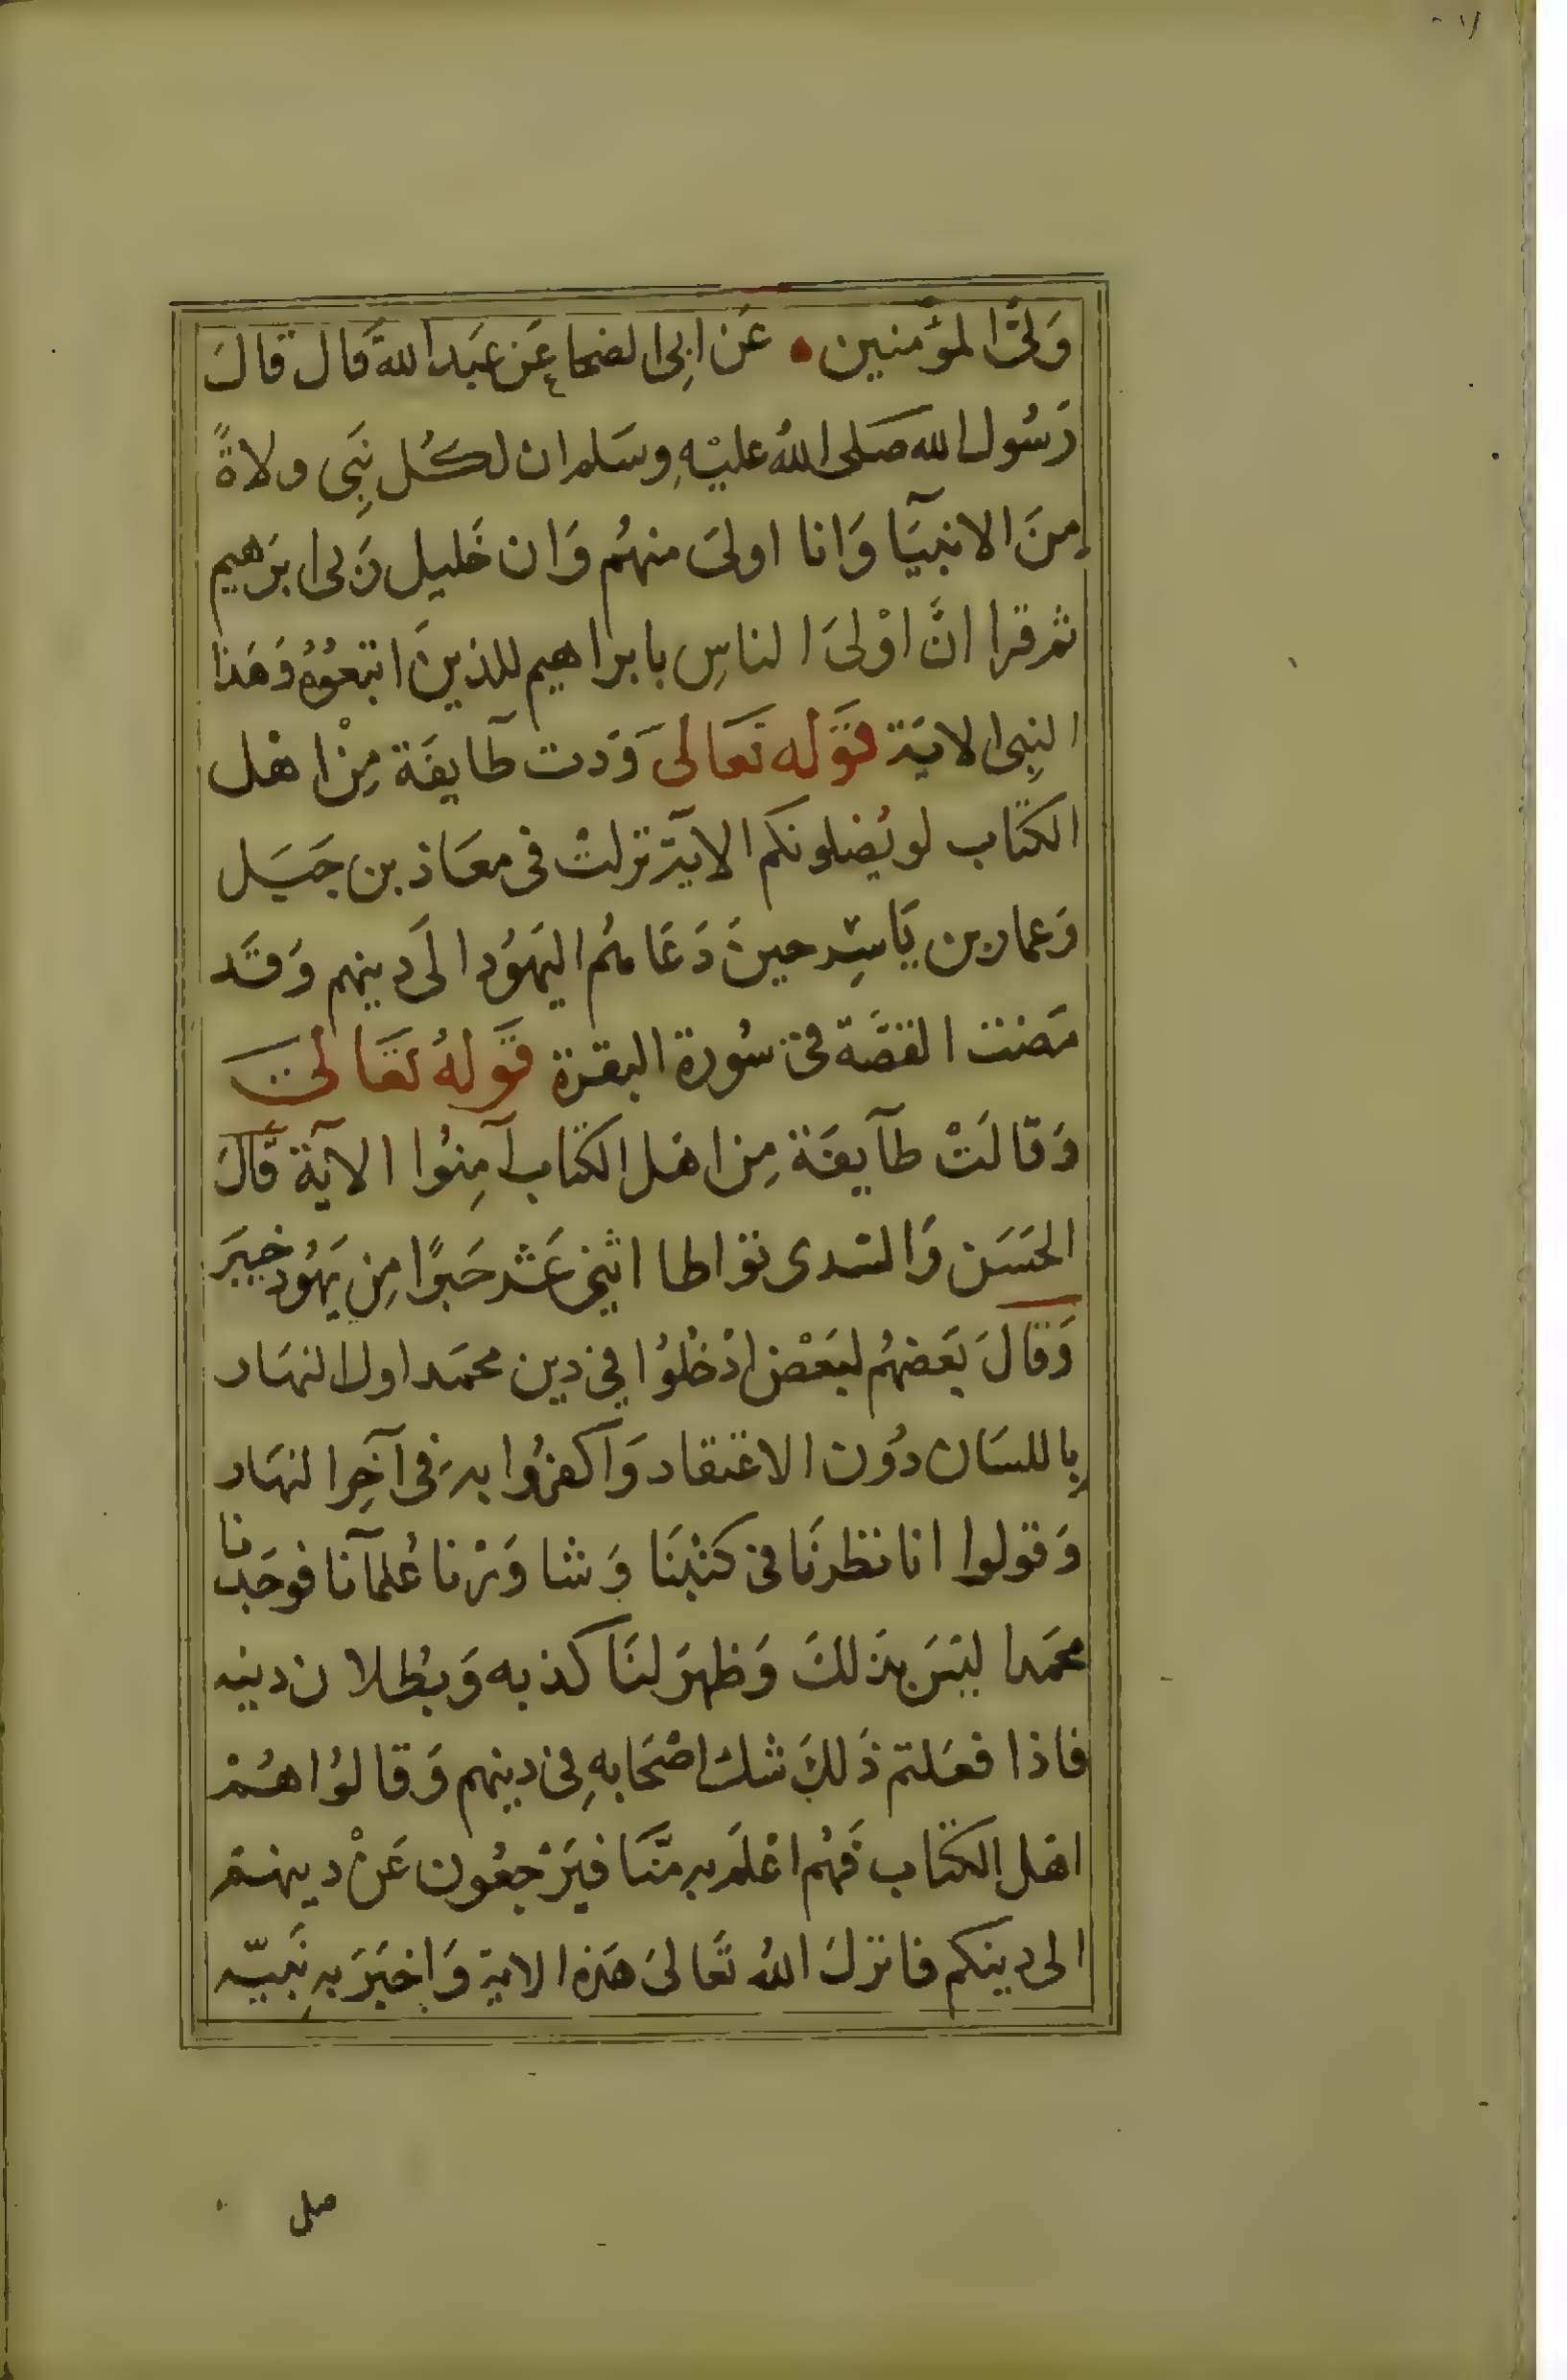 وَلىَّ المؤمنين عَن ابِى الضحا عَن عبَد اللهَ قال قالَ
رَسُول الله صَلى اللهُ عليْهِ وسَلم ان لكُل نِبَى ولاةً
مِنَ الانبيَآ وَانا اولىَ منهُم وَان خَليل رَبى ابرَهيم
ثم قرا انَّ اوْلىَ الناسِ بابراهيم للذينَ اتبعُوُه وَهَذا
النبِى الايَة قوَله تعَالىَ وَدت طآيفَة مِنْ اهْل
الكتاب لو يُضلونكم الآية نزلتْ فى معَاذ بن جَبَل
وَعمار بن يَاسِر حينَ دَعَاهُم اليَهوُد الىَ دينهم وَقَد
مَضت القصَّة فى سُورة البقرَة قوَلهُ تعَالىَ
وَقالَتْ طآيفَة مِن اهَل الكتاب آمِنوُا الآيَة قَالَ
الحَسَن وَالسَدى تواطا اثنى عَشر حَبرًا مِن يَهوُد خيبَر
وَقالَ بَعضهُم لبَعْض ادْخلوُا فى دين محمَد اول النهَار
باللسَان دوُن الاعْتقاد وَاكفرُوا به فى آخِر النهَار
وَقولوا انا نظرنَا فى كتُبنَا وَشاوَرْنا عُلمآنا فوجَدنا
محمَدا ليسَ بذَلكَ وَظهرَ لنَا كذبه وَبُطلان دينه
فاذا فعَلتم ذَلكَ شك اصْحَابهِ فى دينهم وَقالوُا هُمْ
اهَل الكتاب فَهُم اعْلَم به منَّا فيَرْجعُون عَنْ دينهم
الى دينكم فانزلَ اللهُ تعَالىَ هَذه الاية وَاخبَرَ بهِ نَبيّه
صلى